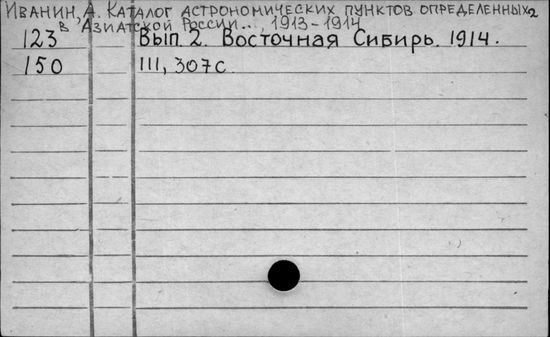 Иванин, А. Каталог астрономических пунктов определенных 2
в Азиатской России... 1913-1914
123 Вып. 2. Восточная Сибирь. 1914.
150 III, 307с.